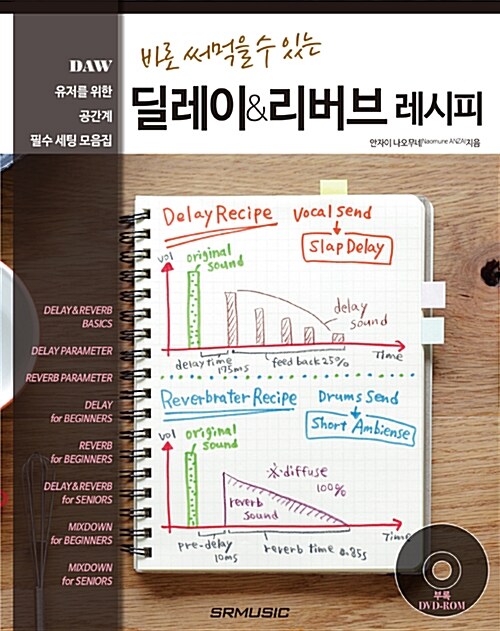 DAW
유저를 위한
공간계
필수 세팅 모음집
바로 써먹을 수 있는
딜레이&리버브 레시피
안자이 나오무네(Naomune ANZAI)지음
DELAY&REVERB
BASICS
DELAY PARAMETER
REVERB PARAMETER
DELAY
for BEGINNERS
REVERB
for BEGINNERS
DELAY&REVERB
for SENIORS
MIXDOWN
for BEGINNERS
MIXDOWN
for SENIORS
Delay Recipe
Vocal Send
Slap Delay
vol
original
sound
delay
sound
delay time
175ms
feed back 25%
Time
Reverbrater Recipe
Drums Send
Short Ambiense
vol
original
sound
※diffuse
100%
reverb
sound
pre-delay
10ms
reverb time 0.85s
Time
부록
DVD-ROM
SRMUSIC